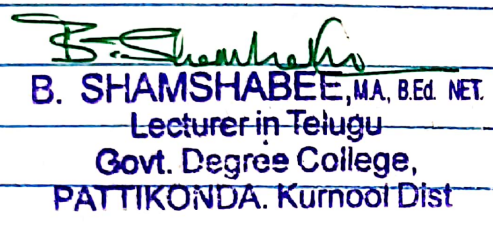 B. Shamshabee
B. SHAMSHABEE, MA, B.Ed. NET.
Lecturer in Telugu
Govt. Degree College,
PATTIKONDA. Kurnool Dist